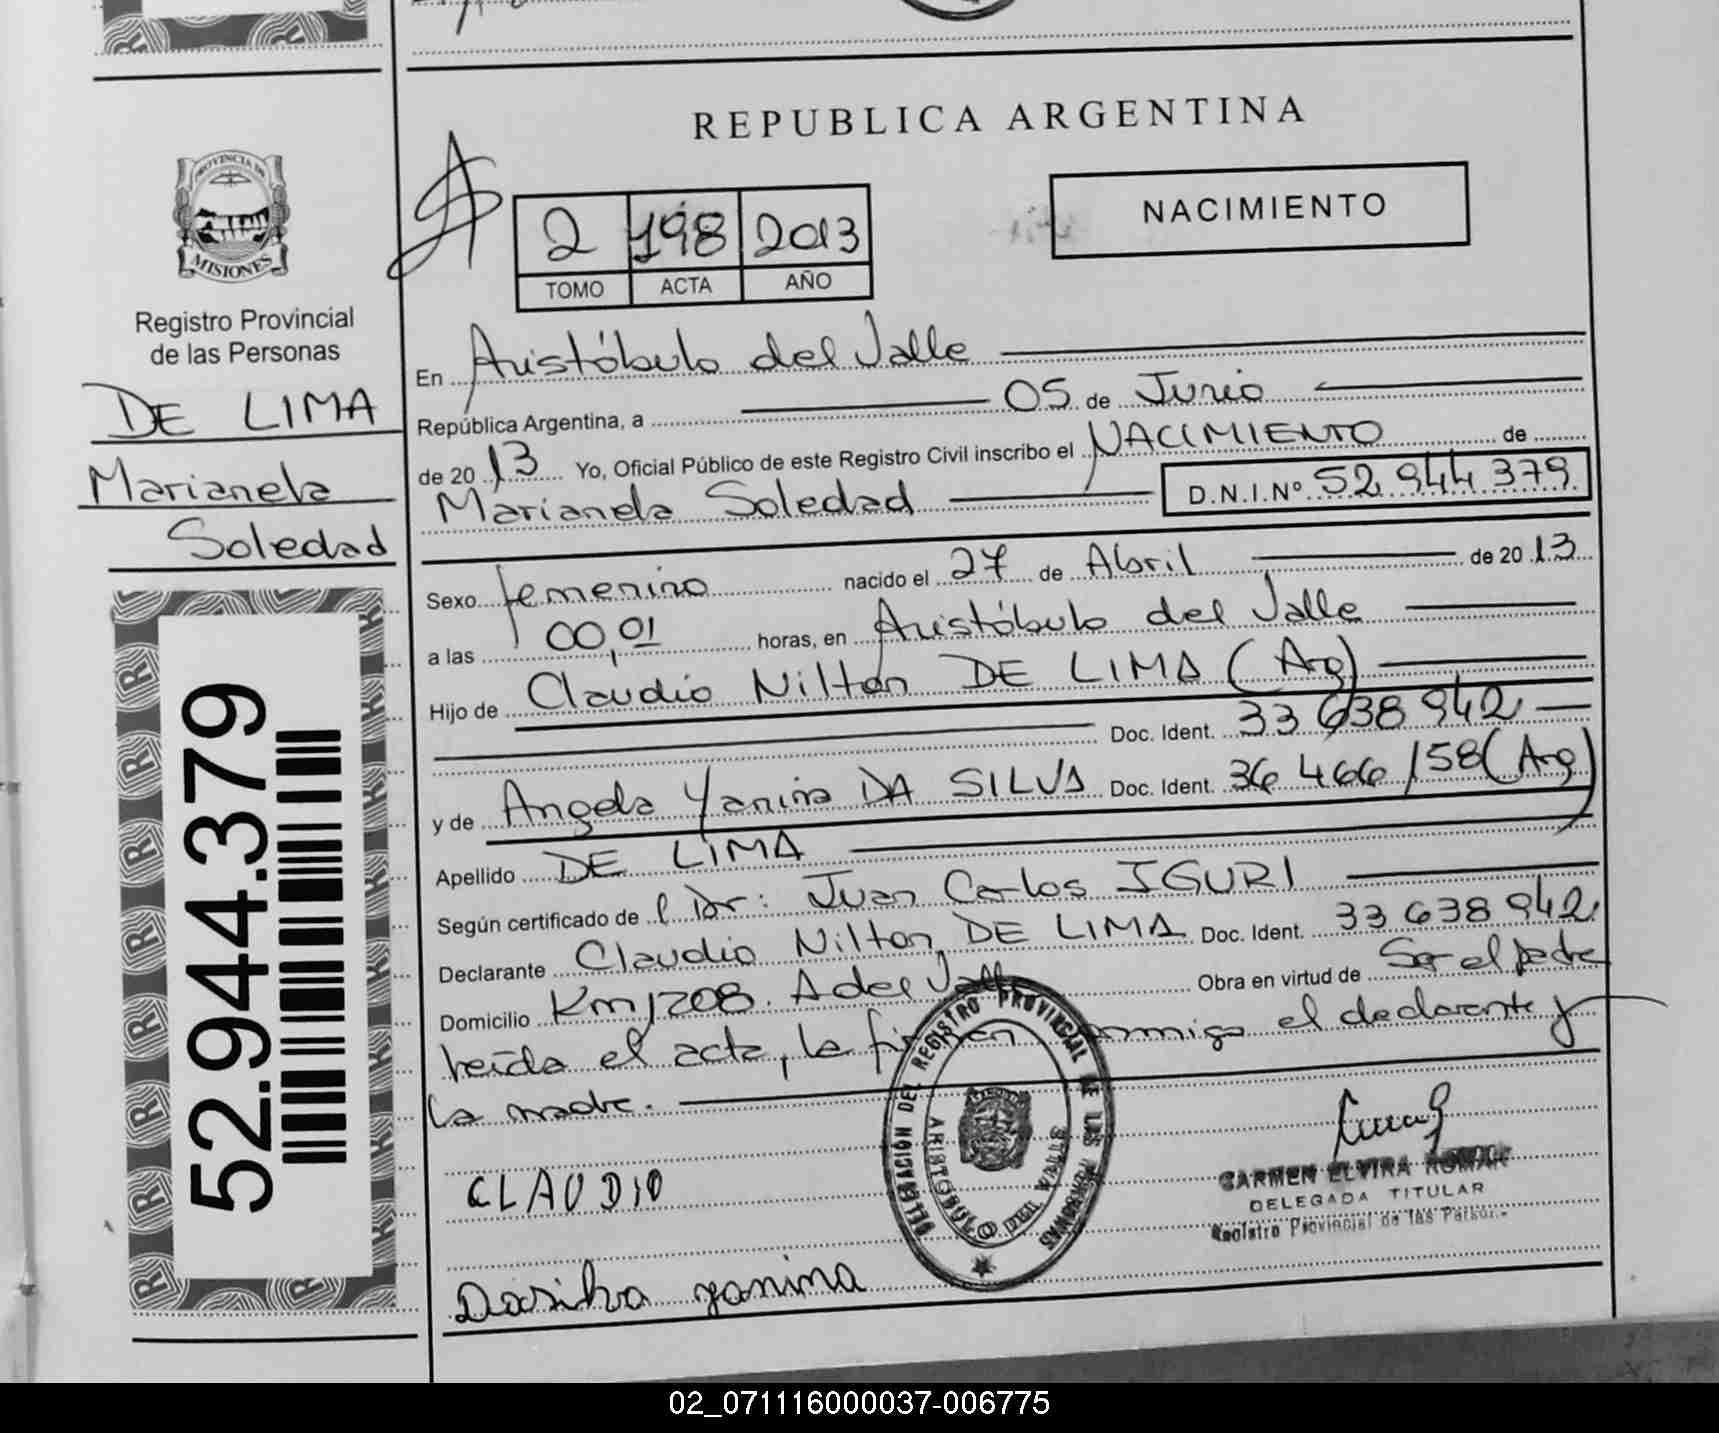 REPUBLICA ARGENTINA
PROVINCIA DE
MISIONES
Registro Provincial
de las Personas
DE LIMA
Marianela
Soledad
52.944.379
2 198 2013
TOMO ACTA AÑO
NACIMIENTO
En Aristóbulo del Valle
República Argentina, a 05 de Junio
de 2013 Yo, Oficial Público de este Registro Civil inscribo el NACIMIENTO de
Marianela Soledad D.N.I.Nº 52 944 379
Sexo femenino nacido el 27 de Abril de 2013
a las 00,01 horas, en Aristóbulo del Valle
Hijo de Claudio Nilton DE LIMA (Arg)
Doc. Ident. 33 638 942
y de Angela Yanina DA SILVA Doc. Ident. 36 466 158 (Arg)
Apellido DE LIMA
Según certificado de l Dr: Juan Carlos IGURI
Declarante Claudio Nilton DE LIMA Doc. Ident. 33 638 942
Domicilio Km 1208. A del Valle Obra en virtud de Ser el padre
heida el acta, la firman conmigo el declarante y
la madre.
CLAUDIO
Dasilva yanina
DELEGACIÓN DEL REGISTRO PROVINCIAL DE LAS PERSONAS
ARISTOBULO DEL VALLE
CARMEN ELVIRA
DELEGADA TITULAR
Registro Provincial de las Person.
02_071116000037-006775